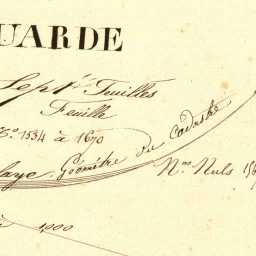 UARDE
Sept.t feuilles
feuille
N.o 1534 à 1670
laye Géomètre du Cadastre
N.os Nuls 156
à 1000